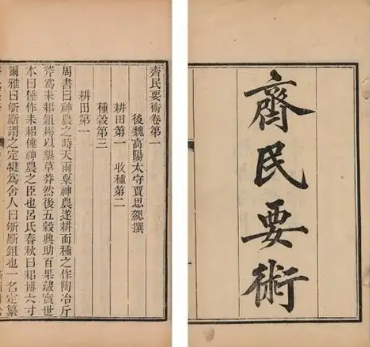 齊民要術
齊民要術卷第一
後魏高陽太守賈思勰撰
耕田第一　收種第二
種穀第三
耕田第一
周書曰神農之時天雨粟神農遂耕而種之作陶冶斤
斧爲耒耜鉏耨以墾草莽然後五穀興助百果藏實世
本曰倕作耒耜倕神農之臣也呂氏春秋曰耜博六寸
爾雅曰斪斸謂之定犍爲舍人曰斪斸鉏也一名定纂